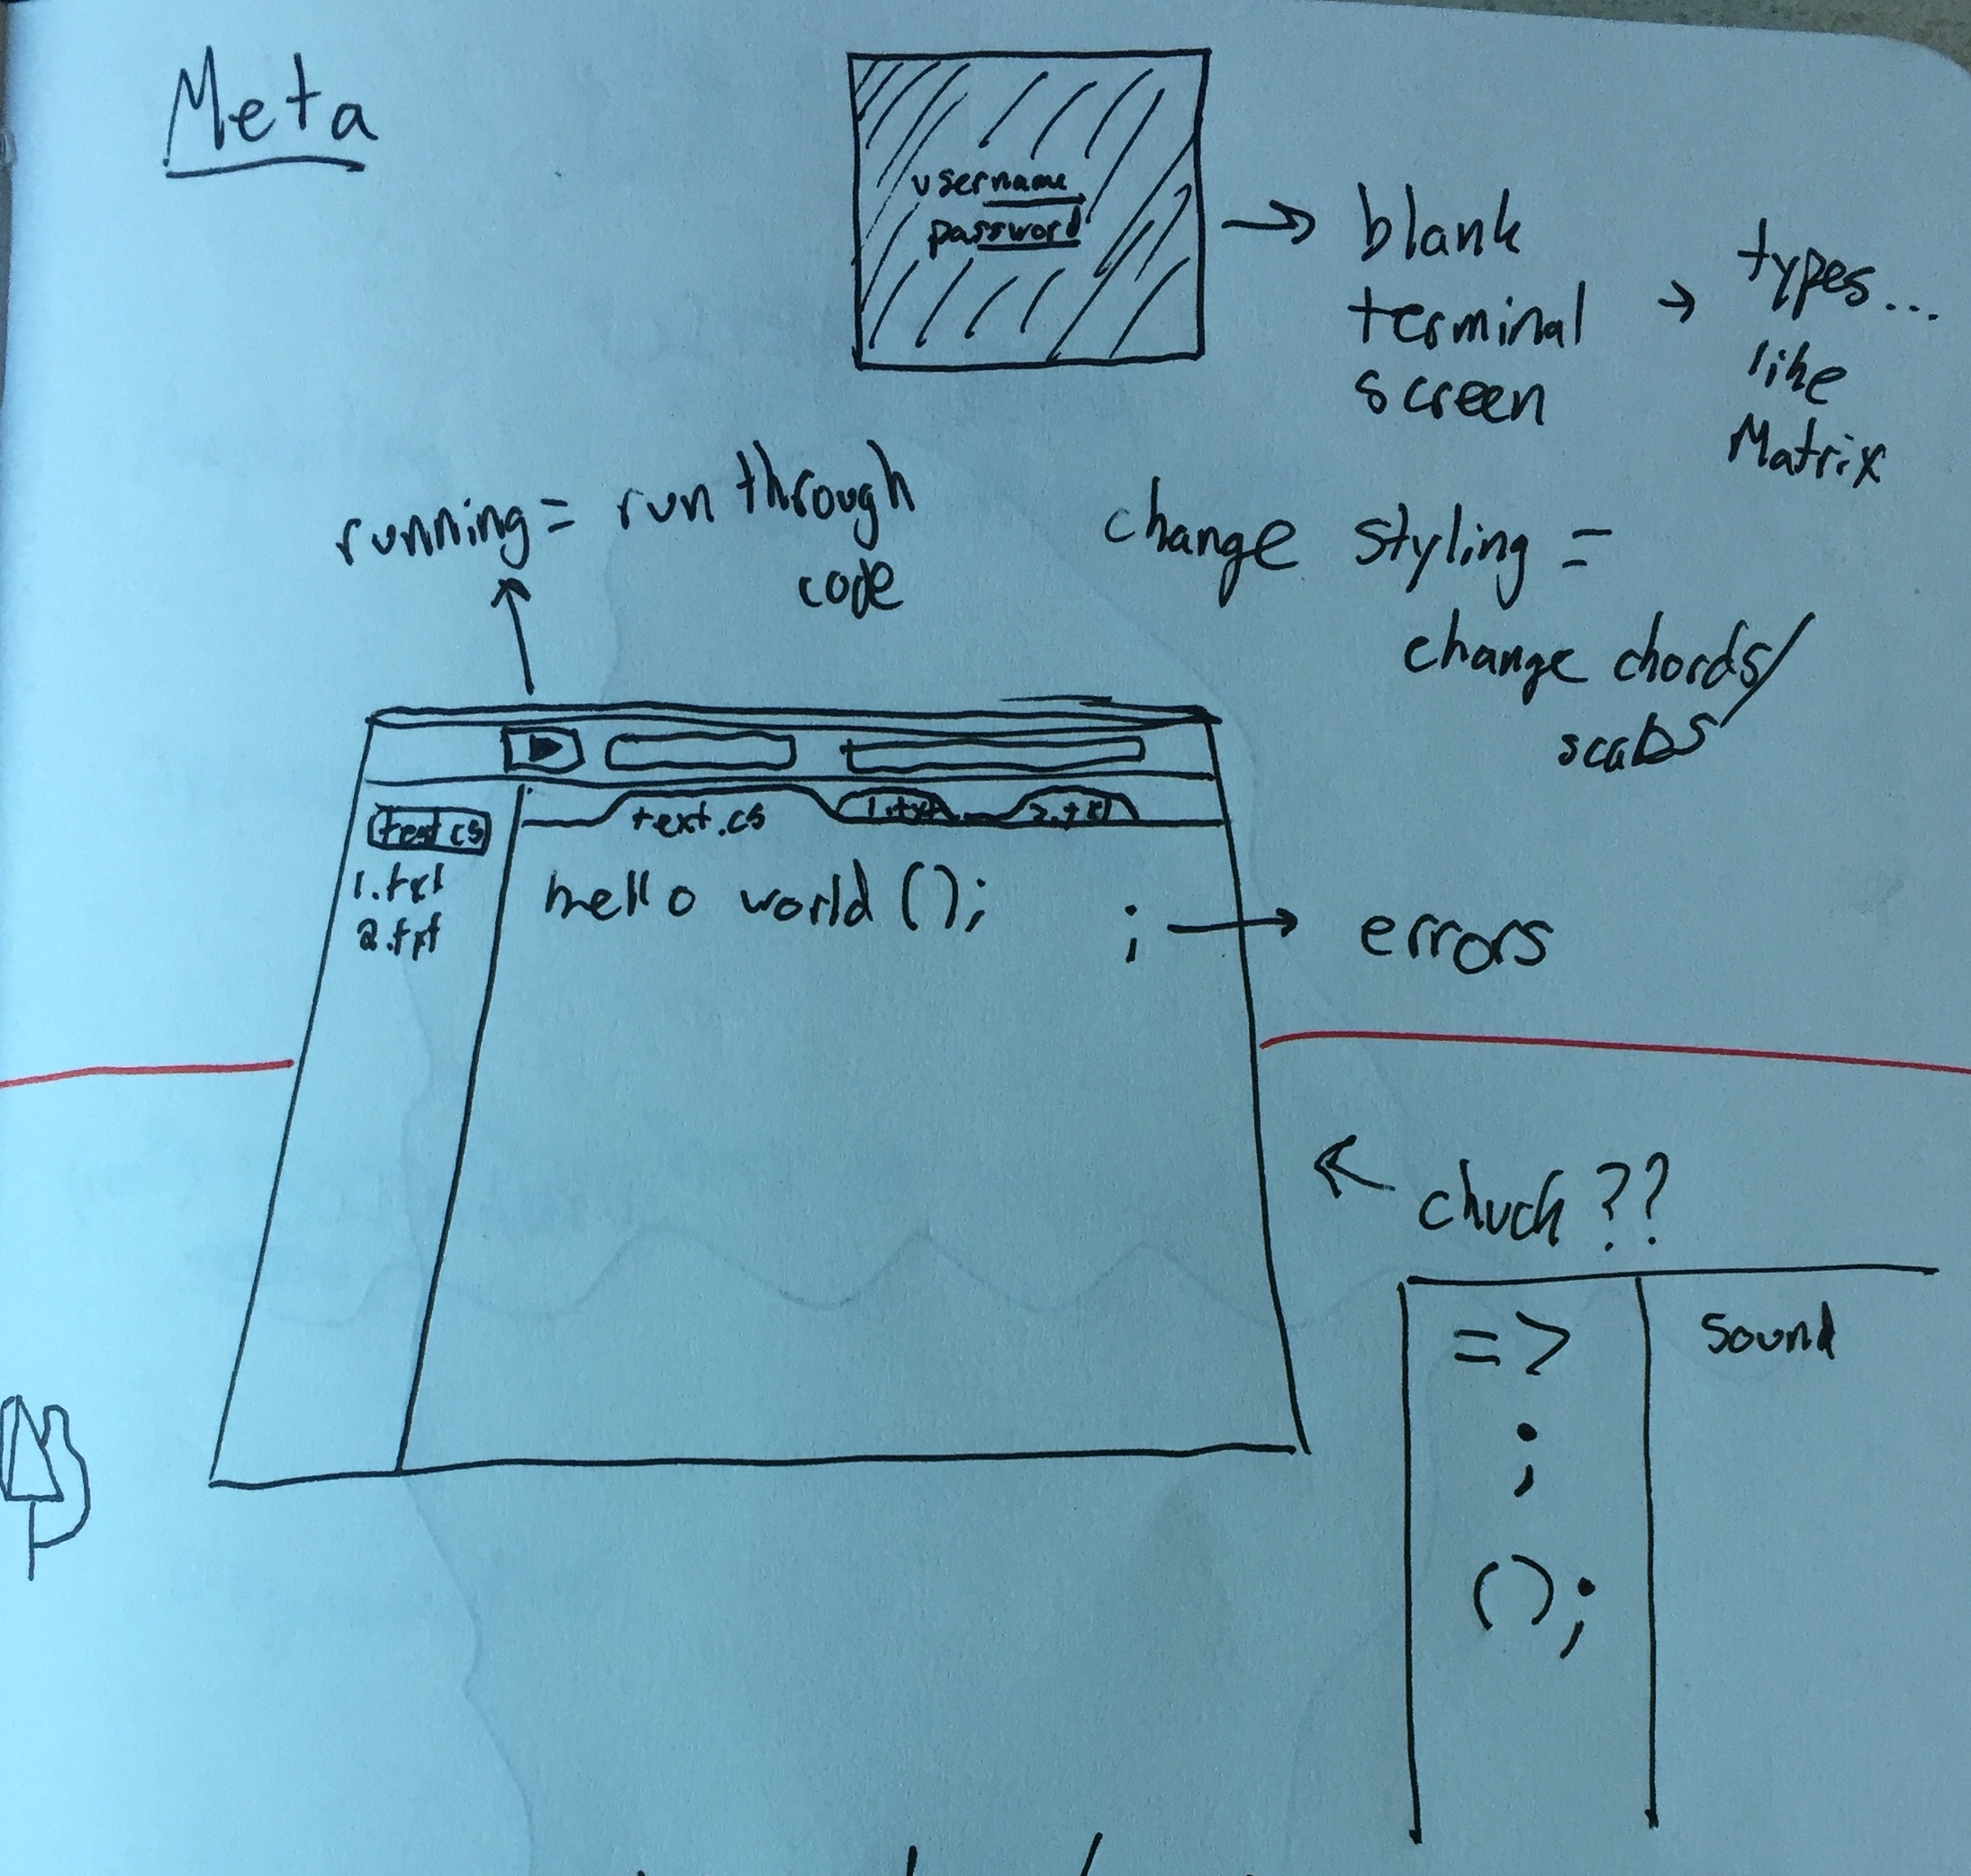 Meta
username
password
blank
terminal
screen
types...
like
Matrix
running = run through
code
change styling =
change chords/
scales
text.cs
1.txt
2.txt
text.cs
1.txt
2.txt
hello world ();
;
errors
chuck ??
=>
;
();
sound